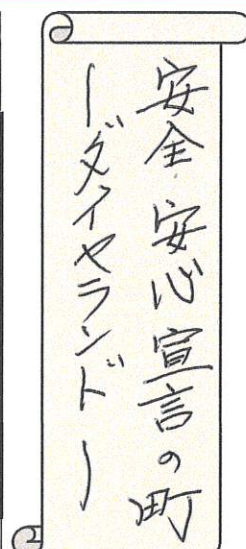 安全・安心宣言の町
～ダイヤランド～